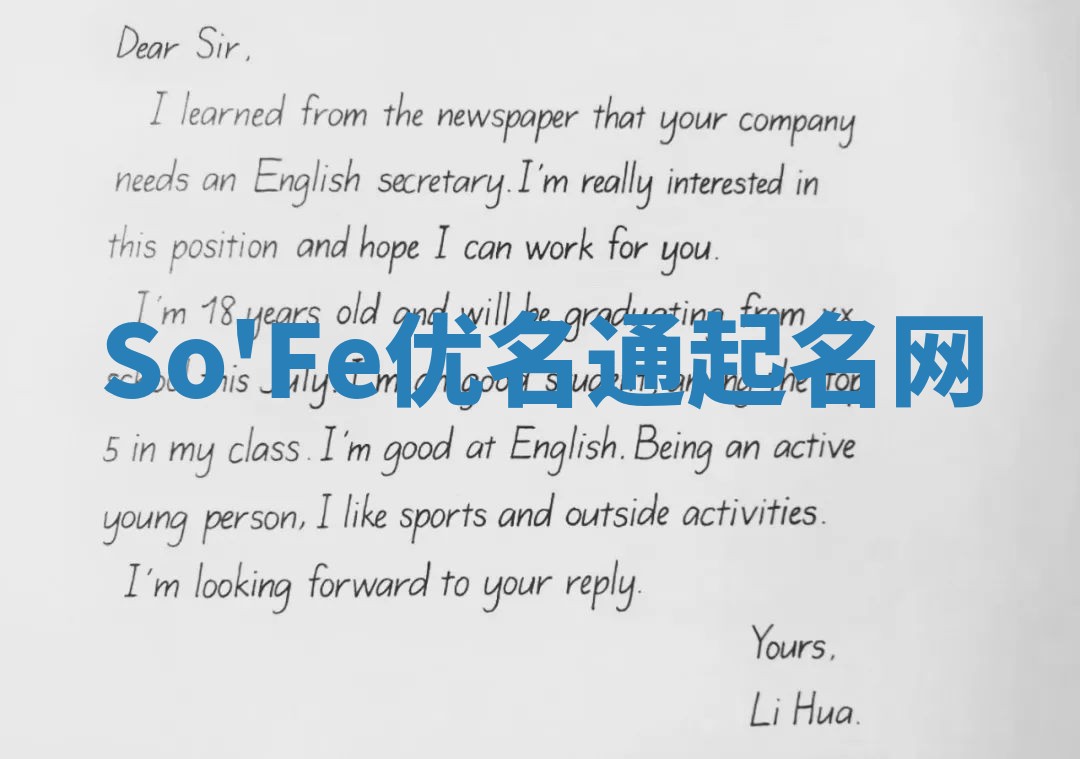 Dear Sir,
I learned from the newspaper that your company
needs an English secretary. I'm really interested in
this position and hope I can work for you.
I'm 18 years old and will be graduating from xx
So'Fe优名通起名网
school this July. I'm a good student, among the top
5 in my class. I'm good at English. Being an active
young person, I like sports and outside activities.
I'm looking forward to your reply.
Yours,
Li Hua.